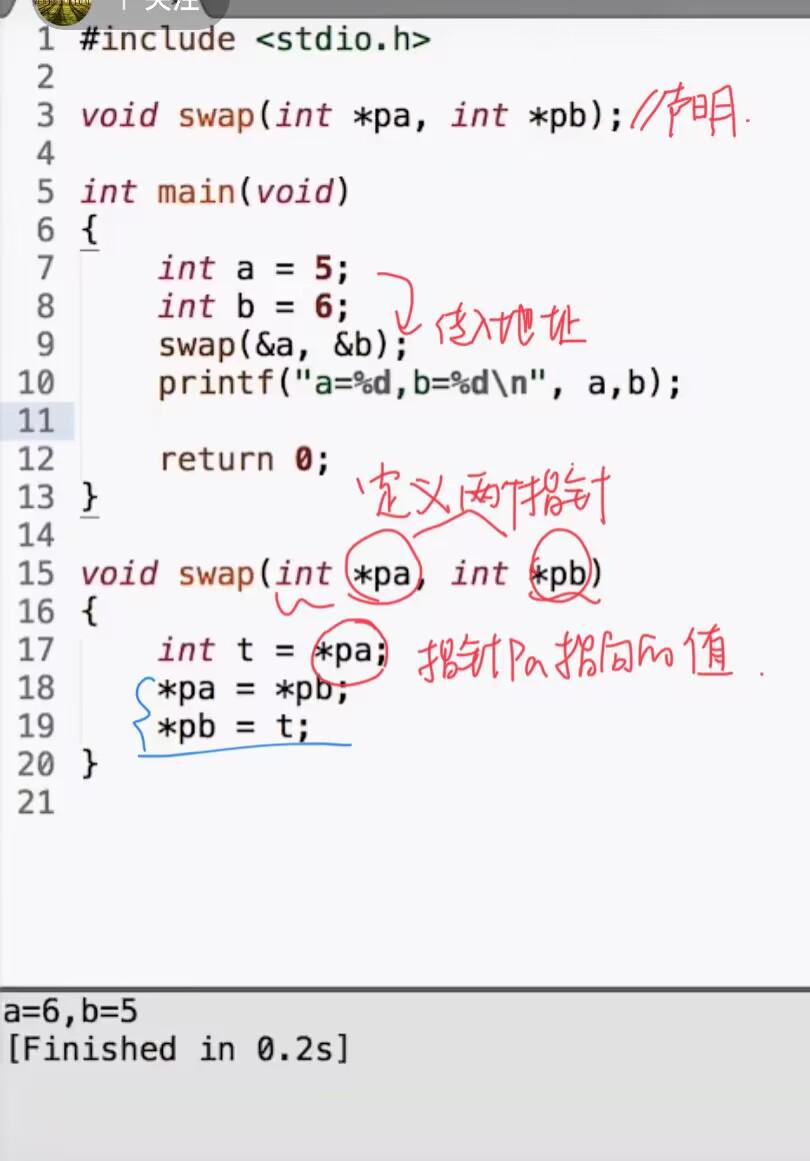 关注
1 #include <stdio.h>
2
3 void swap(int *pa, int *pb); //声明.
4
5 int main(void)
6 {
7 int a = 5;
8 int b = 6;
9 swap(&a, &b); 传入地址
10 printf("a=%d,b=%d\n", a,b);
11
12 return 0;
13 }
定义两个指针
14
15 void swap(int *pa, int *pb)
16 {
17 int t = *pa; 指针pa指向的值.
18 *pa = *pb;
19 *pb = t;
20 }
21
a=6,b=5
[Finished in 0.2s]